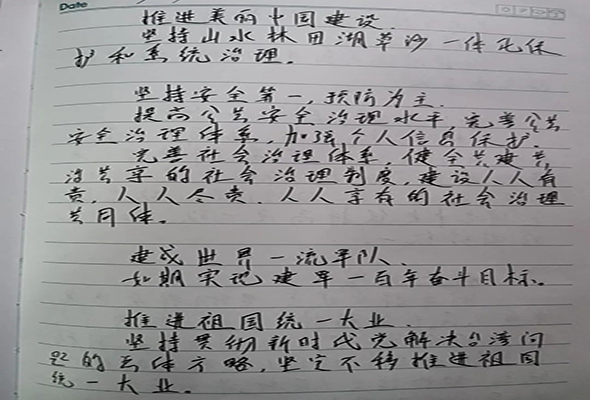 Date
推进美丽中国建设.
坚持山水林田湖草沙一体化保
护和系统治理.
坚持安全第一,预防为主.
提高公共安全治理水平 完善公共
安全治理体系,加强个人信息保护.
完善社会治理体系,健全共建共
治共享的社会治理制度,建设人人有
责,人人尽责,人人享有的社会治理
共同体。
建成世界一流军队.
如期实现建军一百年奋斗目标。
推进祖国统一大业.
坚持贯彻新时代党解决台湾问
题的总体方略,坚定不移推进祖国
统一大业.